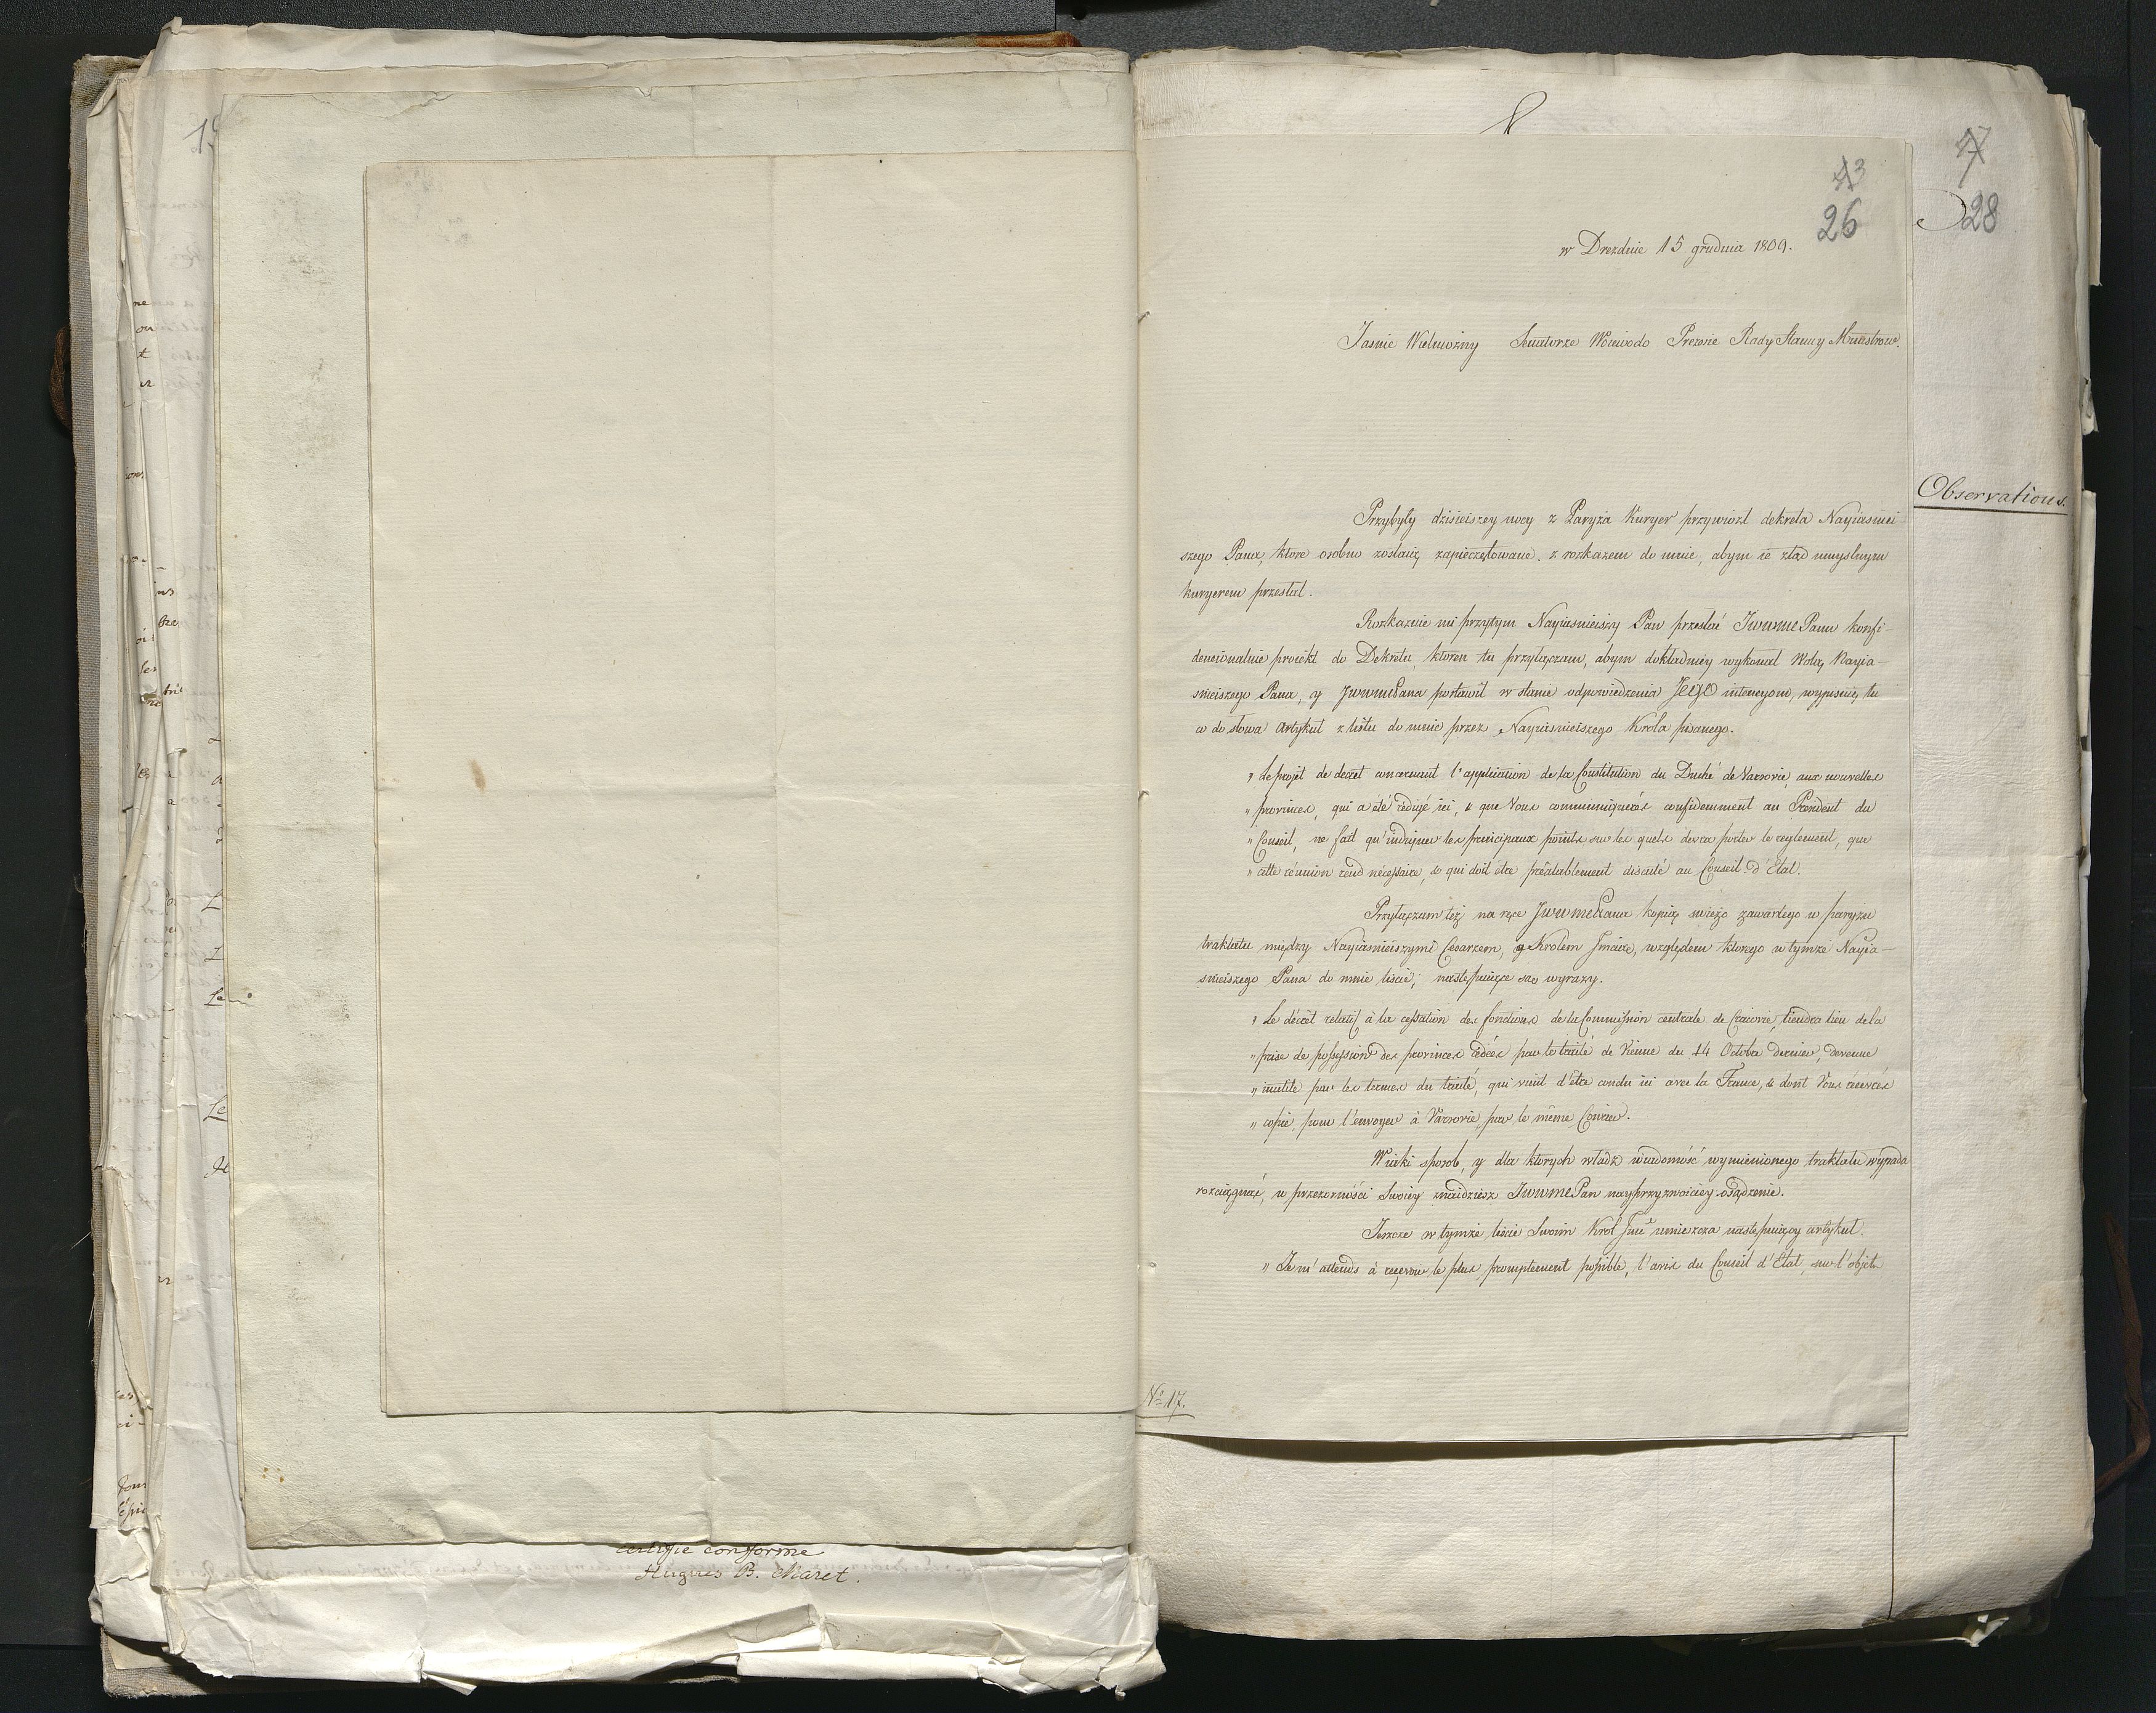 certifié conforme
Hugues B. Maret.
43
26
28
w Dreźnie 15 grudnia 1809.
Jaśnie Wielmożny Senatorze Woiewodo Prezesie Rady Stanu y Ministrow.
Observations.
Przybyły dzisieiszey nocy z Paryża Kuryer przywiozł dekreta Nayiaśniei
szego Pana, ktore osobno zostaią zapieczętowane, z rozkazem do mnie, abym ie ztąd umyslnym
kuryerem przesłał.
Rozkazuie mi przytym Nayiaśnieiszy Pan przesłać JWWMC Panu konfi-
dencionalnie proiekt do Dekretu, ktoren tu przyłączam, abym dokładniey wykonał Wolą Nayia-
śnieiszego Pana, y JWWMCPana postawił w stanie odpowiedzenia JEGO intencyom, wypisuię tu
co do słowa Artykuł z listu do mnie przez Nayiaśnieiszego Krola pisanego.
" Le projet de decret concernant l'application de la Constitution du Duché de Varsovie, aux nouvelles
" provinces, qui a été rédigé ici, & que Vous communiquerés confidemment au President du
" Conseil, ne fait qu'indiquer les principaux points sur les quels devra porter le reglement, que
" cette réunion rend nécessaire, & qui doit etre préalablement discuté au Conseil d'Etat.
Przyłączam też na ręce JWWMCPana kopią swieżo zawartego w paryżu
traktatu między Nayiaśnieiszymi Cesarzem, y Krolem Jmcią, względem ktorego w tymże Nayia-
śnieiszego Pana do mnie liście, nastepuiące są wyrazy.
" Le décret relatif à la cessation des fonctions de la Commission centrale de Cracovie, tiendra lieu de la
" prise de possession des provinces cédées par le traité de Vienne du 14 Octobre dernier, devenue
" inutile par les termes du traité, qui vient d'être conclu ici avec la France, & dont Vous récevrés
" copie, pour l'envoyer à Varsovie, par le même Courier.
W iaki sposob, y dla ktorych władz wiadomość wymienionego traktatu wypada
rozciągnąć, w przezorności Swoiey znaidziesz JWWMC Pan nayprzyzwoiciey osądzenie.
Jeszcze w tymże liście Swoim Krol Jmć umieszcza nastepuiący artykuł.
" Je m'attends à reçevoir le plus promptement possible, l'avis du Conseil d'Etat, sur l'objet
No 17.